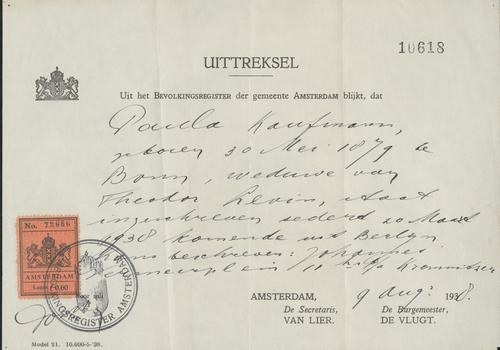 10618
UITTREKSEL
Uit het BEVOLKINGSREGISTER der gemeente AMSTERDAM blijkt, dat
Paula Kaufmann,
geboren 30 Mei 1879 te
Bonn, weduwe van
Theodor Levin, staat
ingeschreven sedert 20 Maart
1938 komende uit Berlyn
beschreven: Johannes
plein 11
No. 72656
AMSTERDAM
Leges f 0.60
BEVOLKINGSREGISTER AMSTERDAM
AMSTERDAM, 9 Aug: 1938.
De Secretaris, De Burgemeester,
VAN LIER. DE VLUGT.
Model 21. 10.600-5-'28.